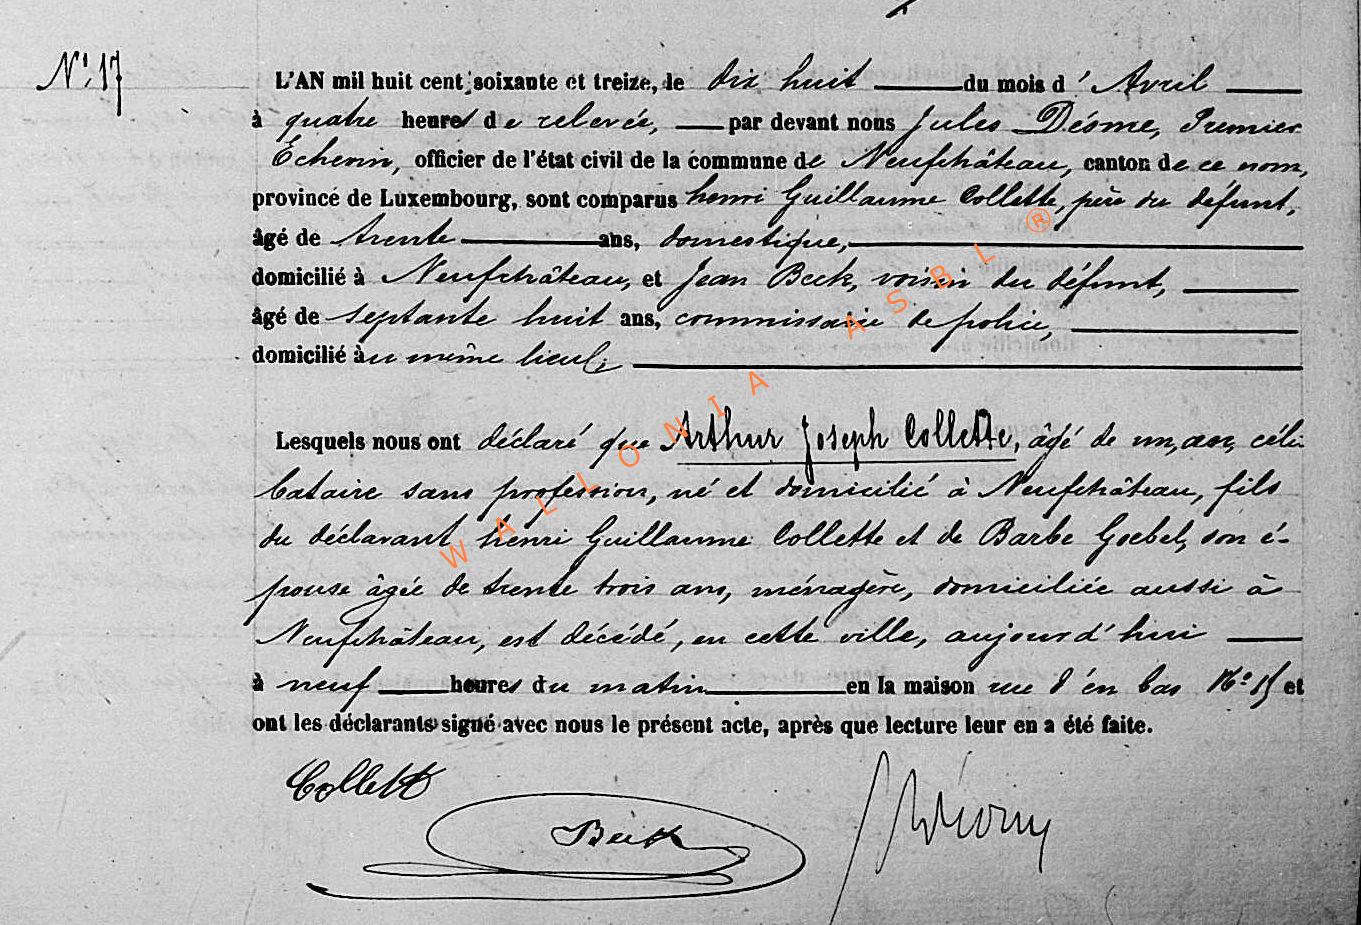 N° 17
L'AN mil huit cent soixante et treize, le dix huit du mois d'Avril
à quatre heures de relevée, par devant nous Jules Désme, Premier
Echevin, officier de l'état civil de la commune de Neufchâteau, canton de ce nom,
province de Luxembourg, sont comparus henri Guillaume Collette, père du défunt,
âgé de trente ans, domestique,
domicilié à Neufchâteau, et Jean Beck, voisin du défunt,
âgé de septante huit ans, commissaire de police,
domicilié au même lieu;
Lesquels nous ont déclaré que Arthur Joseph Collette, âgé de un, an, céli-
bataire sans profession, né et domicilié à Neufchâteau, fils
du déclarant henri Guillaume Collette et de Barbe Goebel, son é-
pouse âgée de trente trois ans, ménagère, domiciliée aussi à
Neufchâteau, est décédé, en cette ville, aujourd'hui
à neuf heures du matin en la maison rue d'en bas N° 15 et
ont les déclarants signé avec nous le présent acte, après que lecture leur en a été faite.
Collette
Beck
WALLONIA ASBL ®